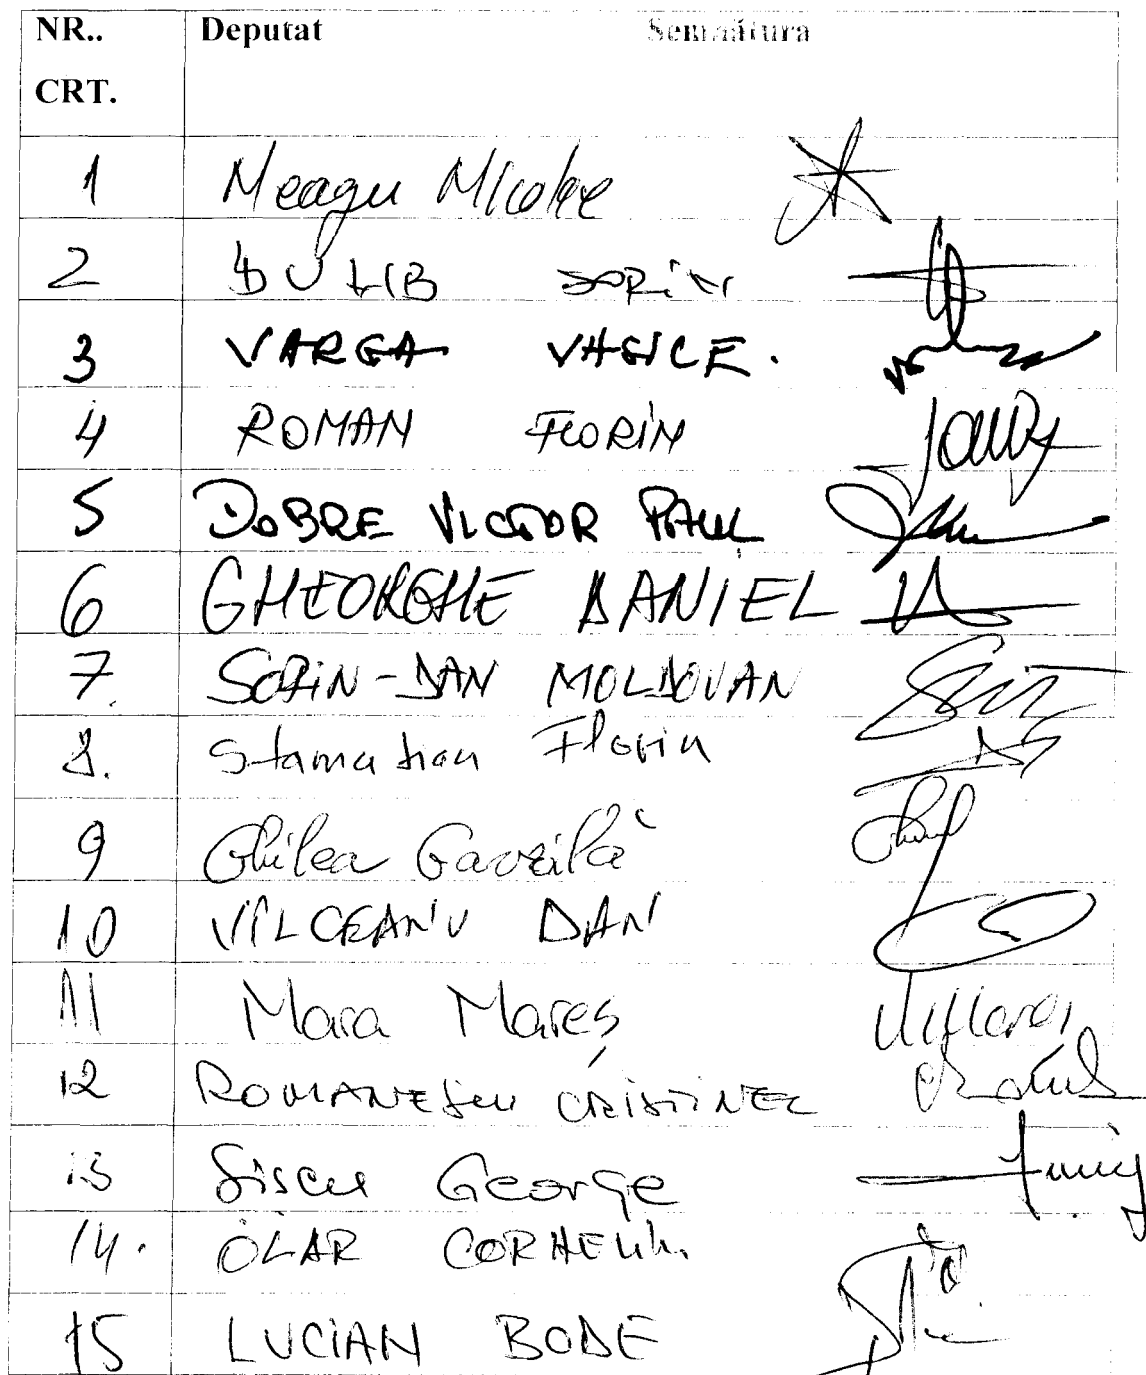 NR.. Deputat Semnătura
CRT.
1 Neagu Nicolae
2 BUMB SORIN
3 VARGA VASILE.
4 ROMAN FLORIN
5 DOBRE VICTOR PAUL
6 GHEORGHE DANIEL
7. SORIN-DAN MOLDOVAN
8. Stamatian Florin
9 Ghilea Găvrilă
10 VÎLCEANU DAN
11 Mara Mareș
12 ROMANESCU CRISTINEL
13 Sișcu George
14. OLAR CORNELIU
15 LUCIAN BODE